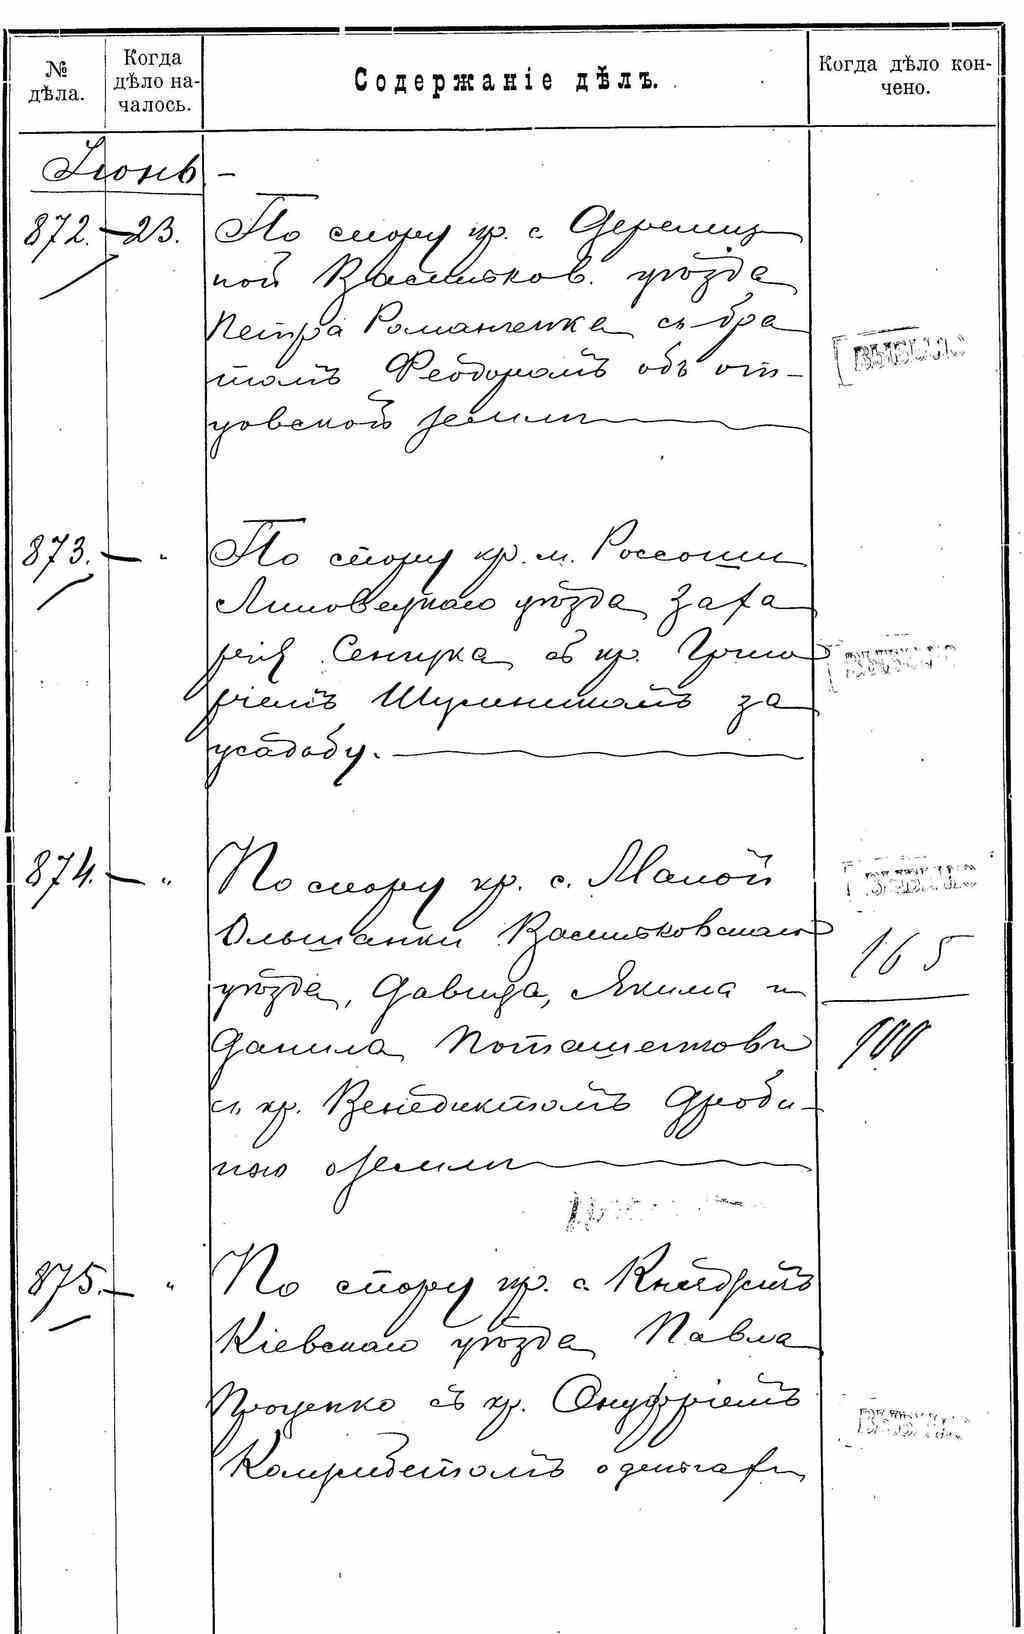 № дѣла.
Когда дѣло на-
чалось.
Содержаніе дѣлъ.
Когда дѣло кон-
чено.
Іюнь -
872. - 23. По спору кр. с. Деремез
ной Васильков. уѣзда
Петра Романченка съ бра
томъ Феодоромъ объ от-
цовской землѣ
873. - " По спору кр. м. Россоши
Липовецкаго уѣзда Заха
рія Сенчука съ кр. Григо
ріемъ за
усадьбу.
874. - " По спору кр. с. Малой
Ольшанки Васильковскаго
уѣзда, Давида, Якима и
Данила
съ кр. Венедиктомъ Дроби-
ною о землѣ
165
900
875. - " По спору кр. с.
Кіевскаго уѣзда Павла
Проценко съ кр. Онуфріемъ
о деньгахъ